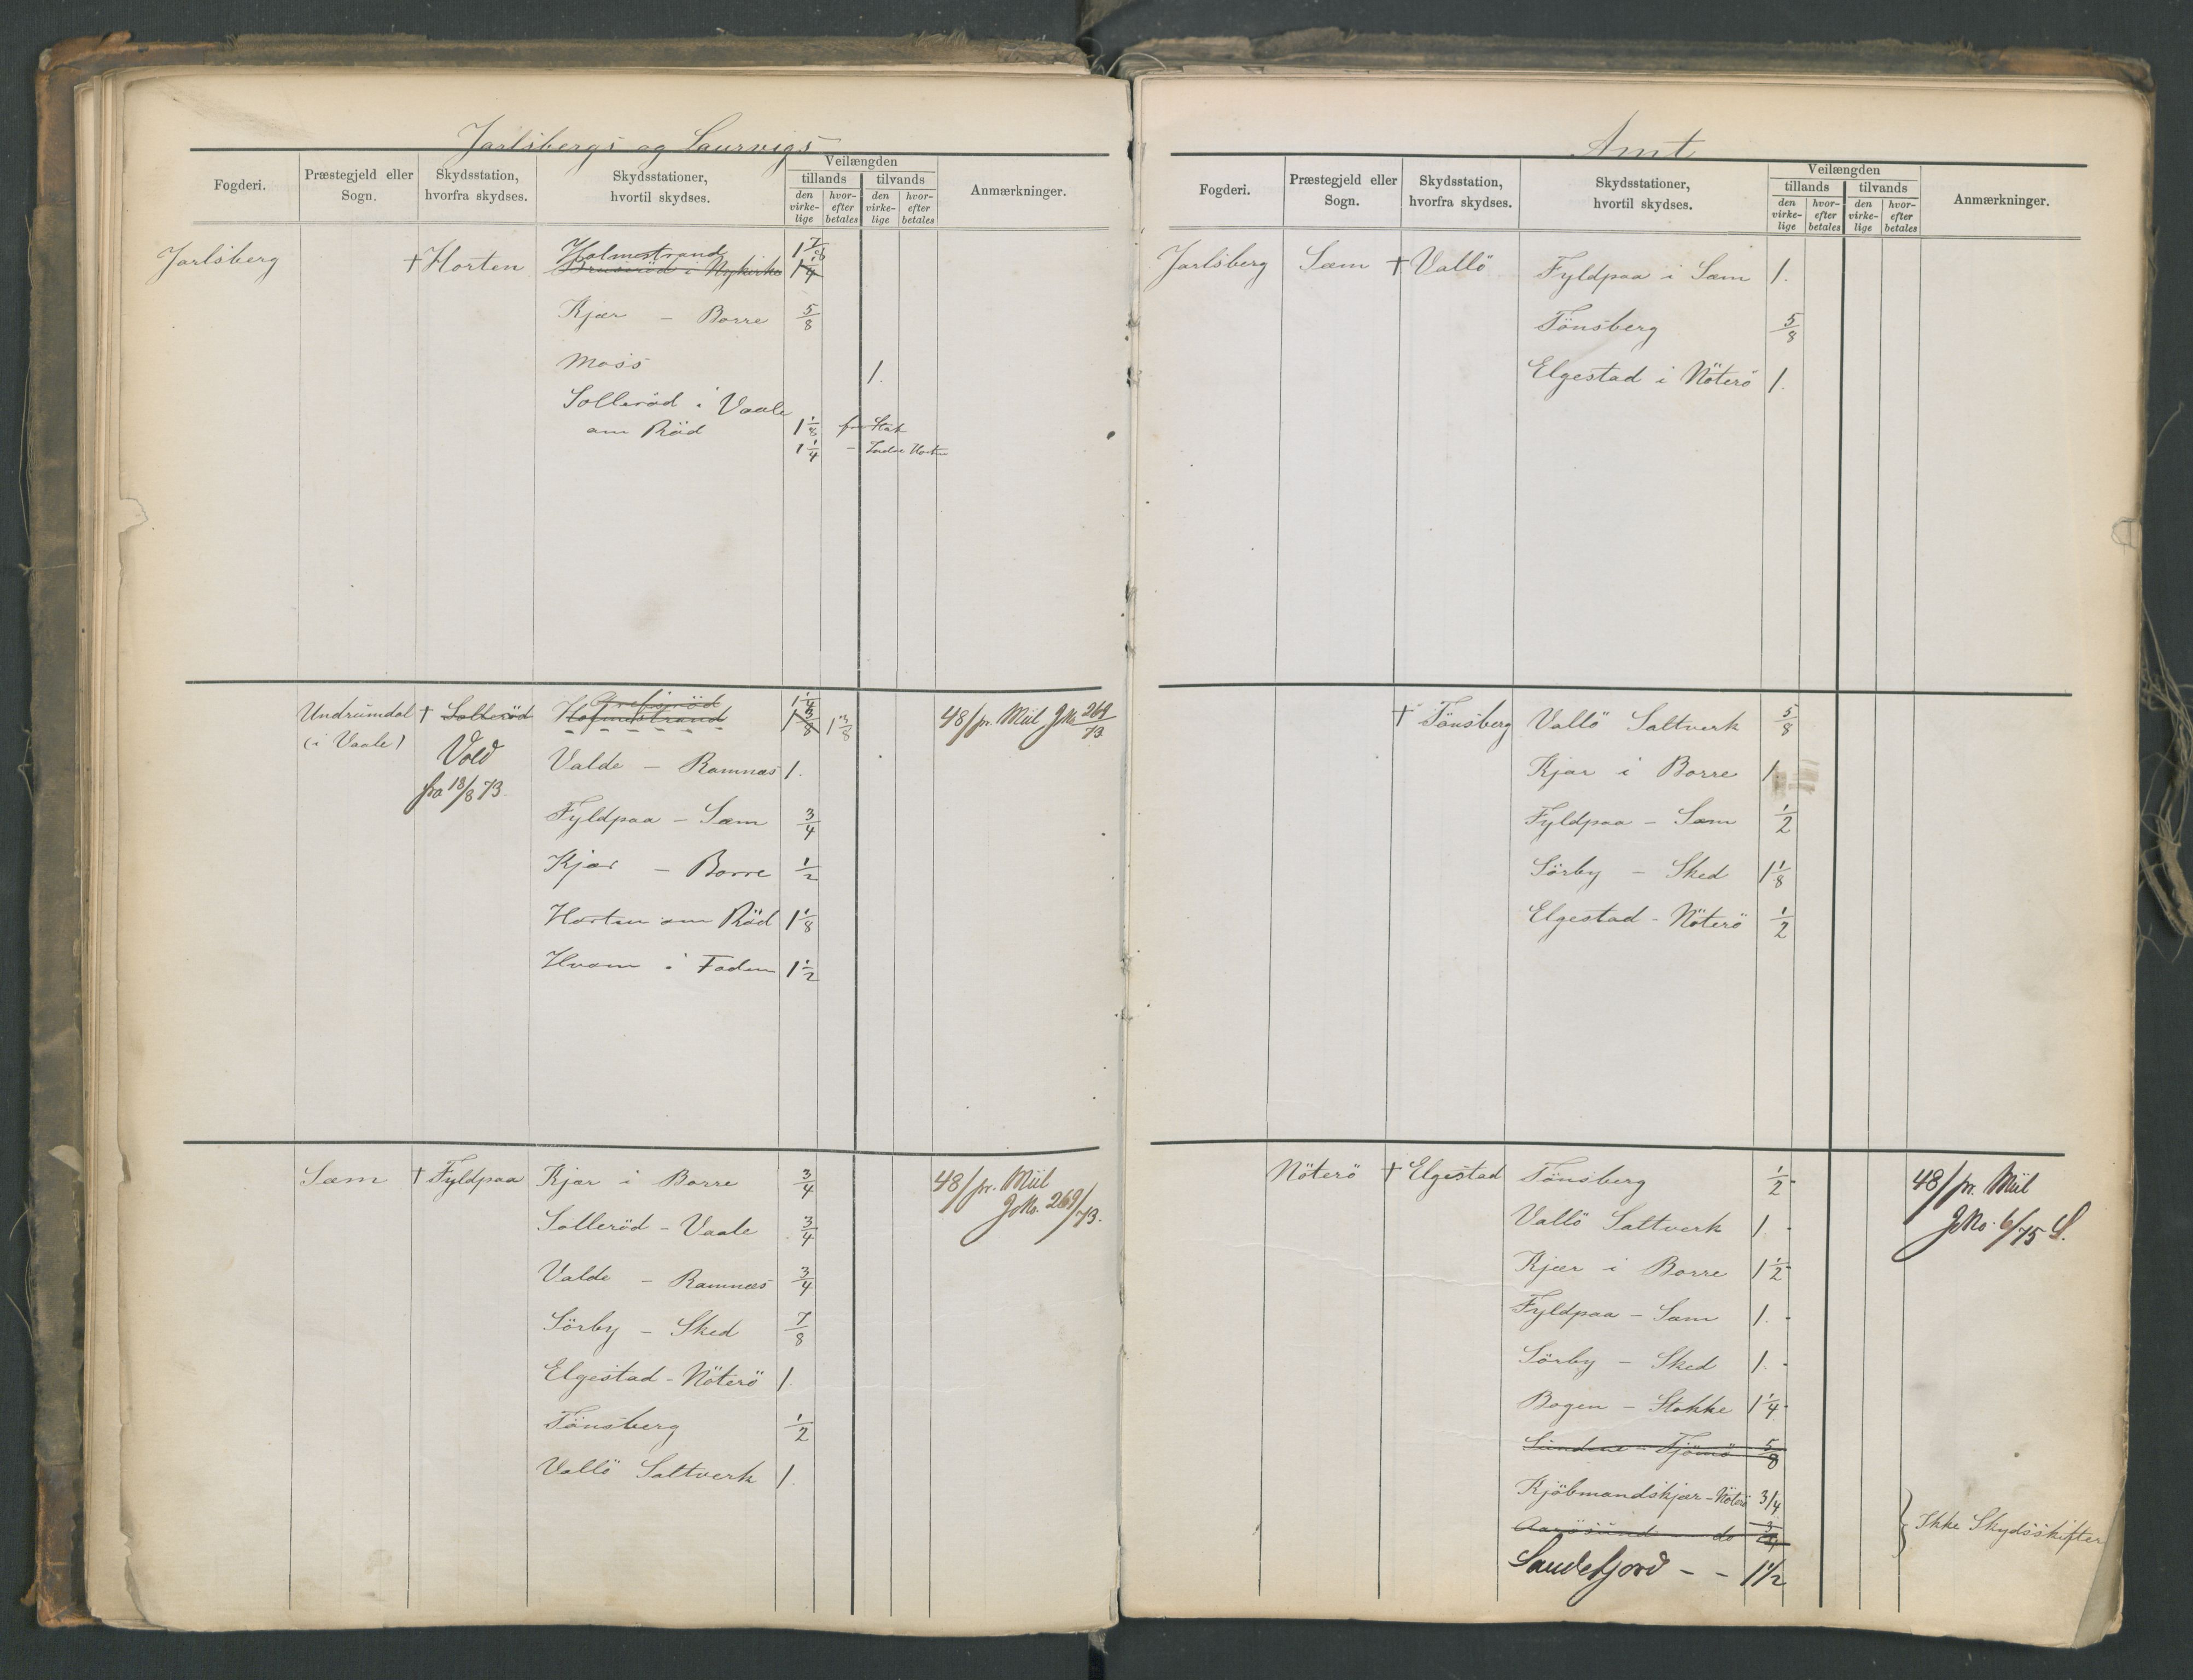 Jarlsbergs og Laurvigs
Fogderi.
Præstegjeld eller
Sogn.
Skydsstation,
hvorfra skydses.
Skydsstationer,
hvortil skydses.
Veilængden
tillands
tilvands
den
virke-
lige
hvor-
efter
betales
den
virke-
lige
hvor-
efter
betales
Anmærkninger.
Jarlsberg † Horten Holmestrand 1 7/8
i Nykirke 1 1/4
Kjær – Borre 5/8
Moss 1.
Solleröd i Vaale
om Röd 1 1/8
1 1/4 – Horten
Undrumdal † Solleröd 1 1/4
(i Vaale) Holmestrand 1 3/8 1 3/8 48/pr. Miil JNo 269/73
Vold
fra 18/8 73.
Valde – Ramnæs 1.
Fyldpaa – Sæm 3/4
Kjær – Borre 1/2
Horten om Röd 1 1/8
Hvam i Foden 1 1/2
Sæm † Fyldpaa Kjær i Borre 3/4 48/pr. Miil
JNo. 269/73.
Solleröd – Vaale 3/4
Valde – Ramnæs 3/4
Sörby – Sked 7/8
Elgestad – Nöterö 1.
Tönsberg 1/2
Vallö Saltverk 1.
Amt
Fogderi.
Præstegjeld eller
Sogn.
Skydsstation,
hvorfra skydses.
Skydsstationer,
hvortil skydses.
Veilængden
tillands
tilvands
den
virke-
lige
hvor-
efter
betales
den
virke-
lige
hvor-
efter
betales
Anmærkninger.
Jarlsberg Sæm † Vallö Fyldpaa i Sæm 1.
Tönsberg 5/8
Elgestad i Nöterö 1.
† Tönsberg Vallö Saltverk 5/8
Kjær i Borre 1.
Fyldpaa – Sæm 1/2
Sörby – Sked 1 1/8
Elgestad – Nöterö 1/2
Nöterö † Elgestad Tönsberg 1/2 48/pr. Miil
JNo. 6/75 S.
Vallö Saltverk 1.
Kjær i Borre 1 1/2
Fyldpaa – Sæm 1.
Sörby – Sked 1.
Bogen – Stokke 1 1/4
Sundene – Tjömö 5/8
Kjöbmandskjær – Nöterö 3/4
Aarösund do 3/4 } Ikke Skydsskifter
Sandefjord – – 1 1/2